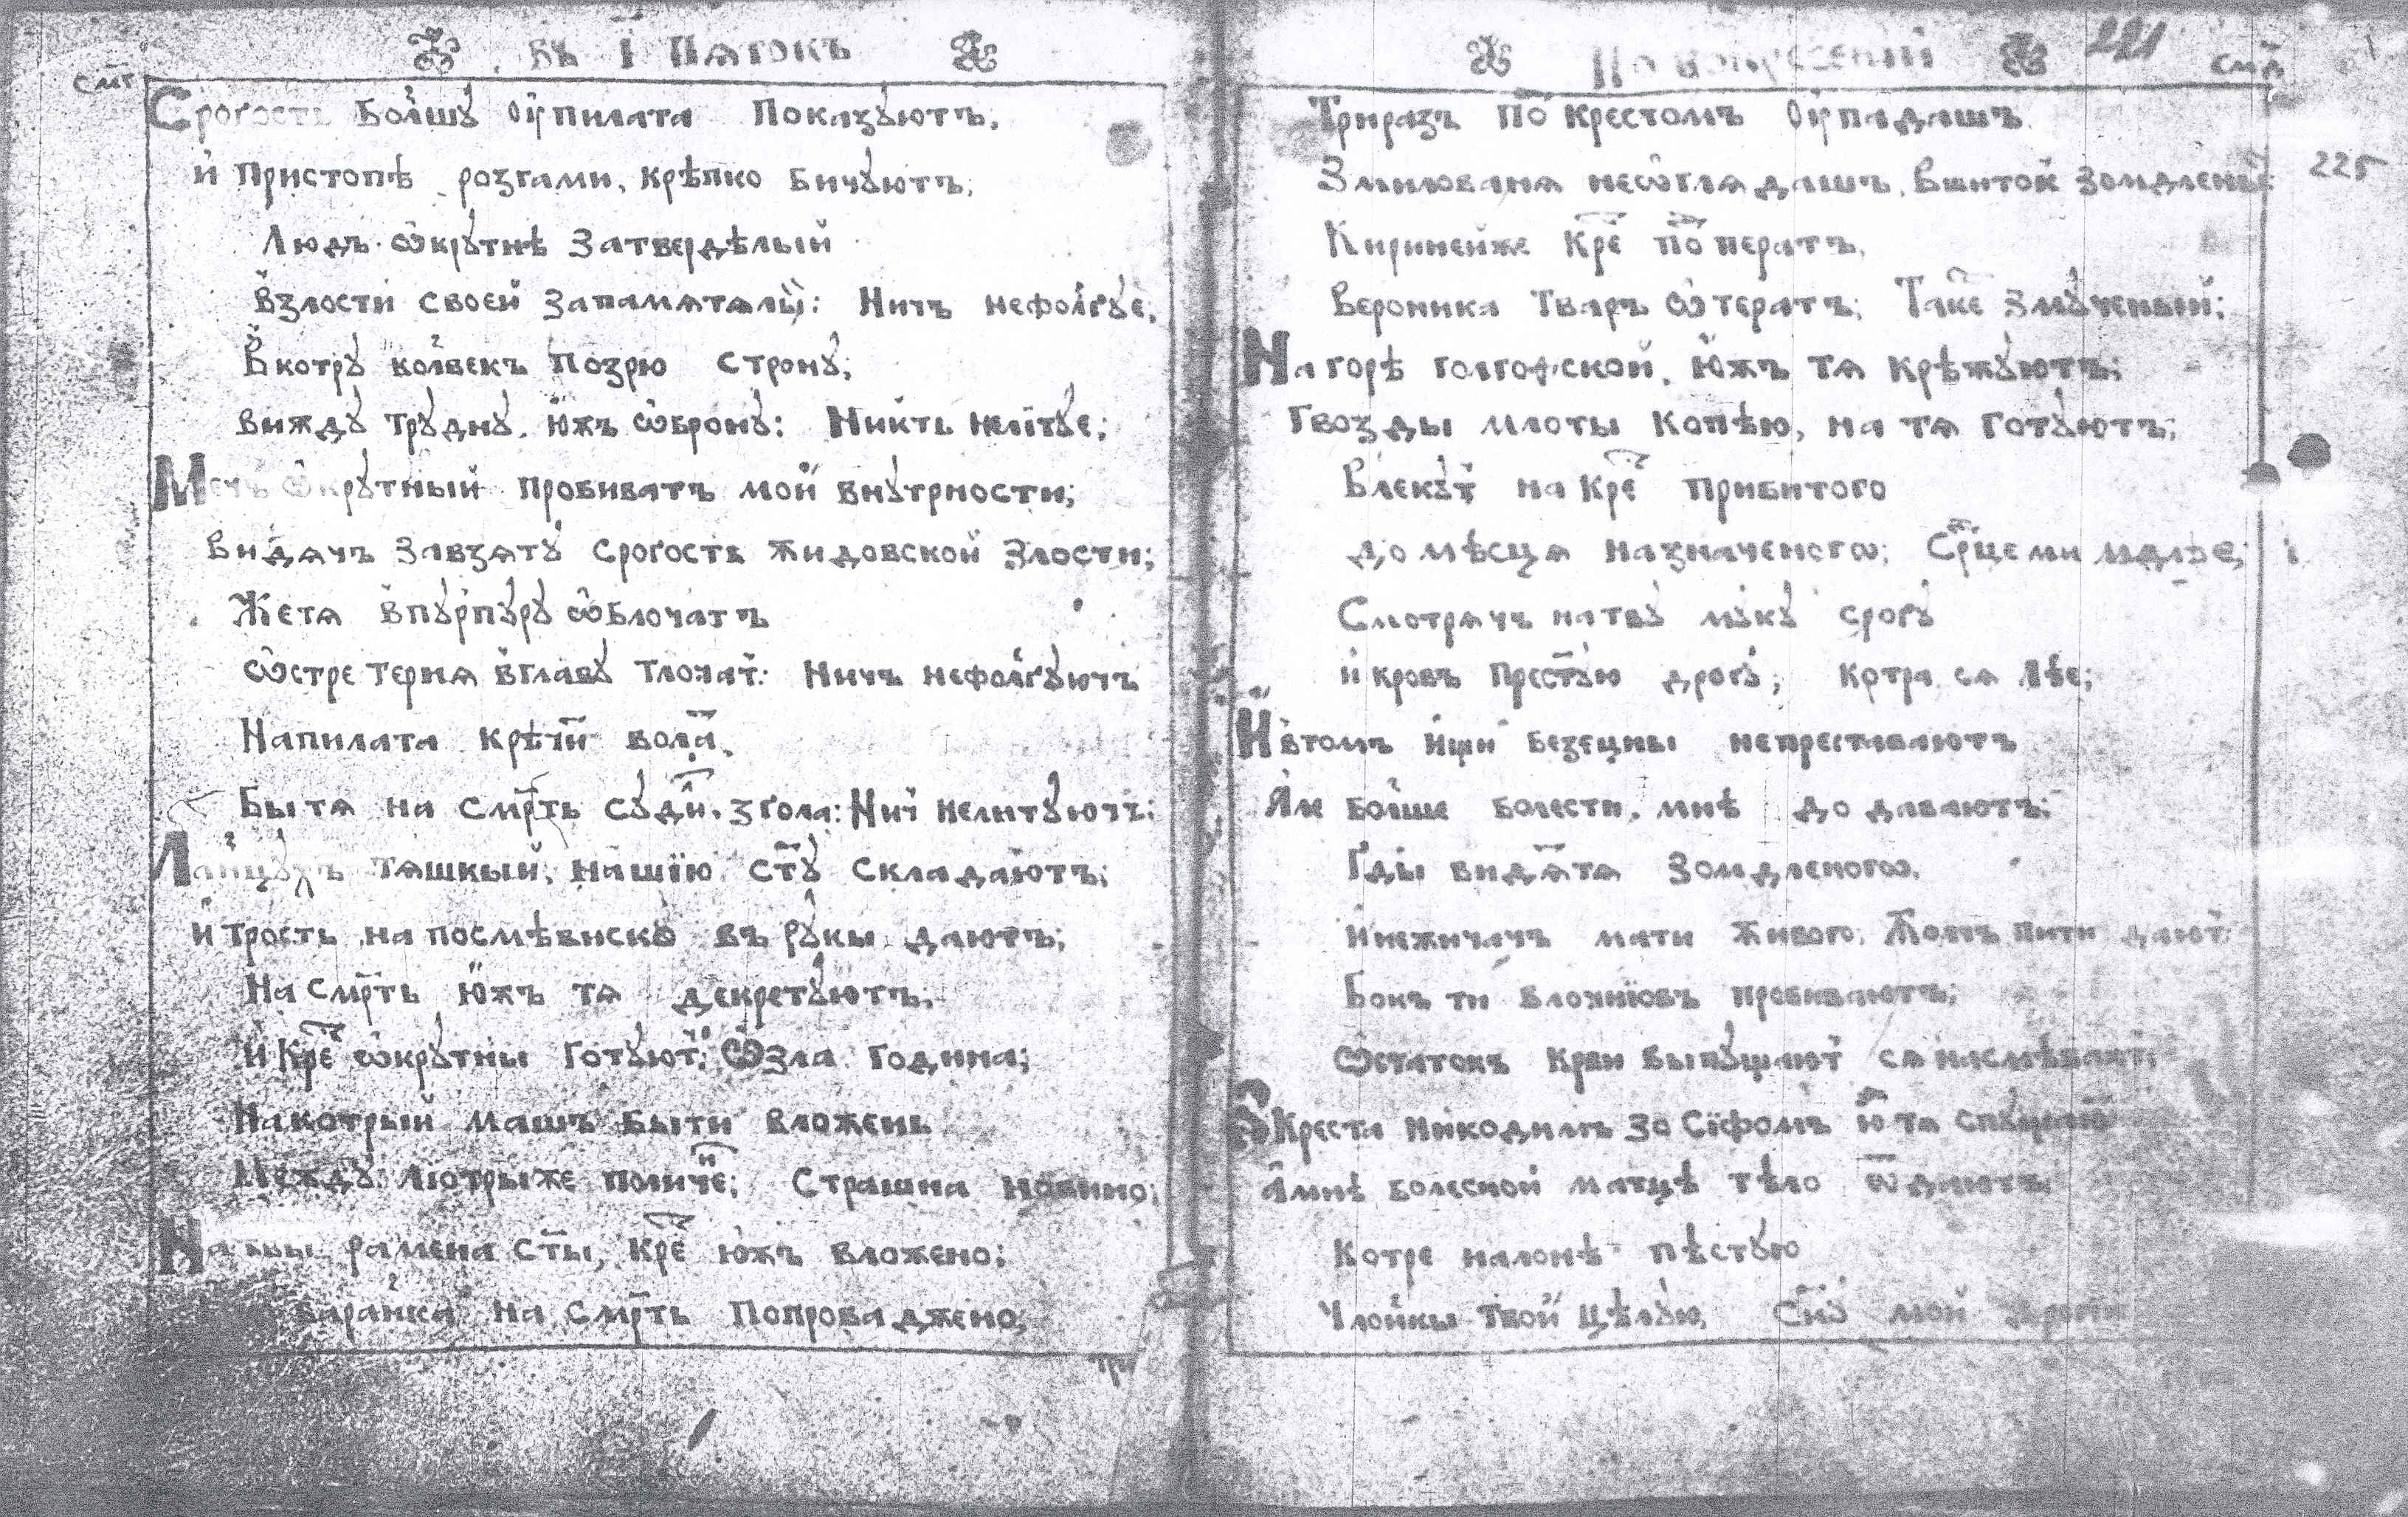 Въ І Пятокъ
смг
Сроґость Болшꙋ оу Пилата Показꙋютъ,
и Пристопѣ розгами, крѣпко Бичꙋютъ;
Людъ ѡкрꙋтнѣ Затвердѣлый
Взлости своей Запамяталый: Ничъ нефолґꙋе,
Вкотрꙋ колвекъ Позрю строну;
вижду трꙋднꙋ, южъ ѡбронꙋ: Никть нелітꙋе;
Мечъ ѡкрꙋтный пробиватъ мои внꙋтрности;
Видячъ Завзятꙋ сроґость Жидовской Злости;
Же тя впꙋрпꙋрꙋ ѡблочатъ
ѡстре терня вглавꙋ тлочат: Ничъ нефолґꙋютъ
На пилата крѣчи вола,
Бы тя на смр҃ть сꙋди, згола: Нич нелитꙋютъ;
Ланцꙋхъ тяшкый, на шїю ст҃ꙋ складаютъ;
и трость на посмѣвиско въ рꙋкы даютъ;
На смр҃ть южъ тя декретꙋютъ,
и Кре҃ ѡкрꙋтны готꙋют; Ѡ зла година;
На котрый машъ быти вложень
Междꙋ лютры же поличе; Страшна новино;
На твы рамена ст҃ы, Кре҃ южъ вложено;
баранка на смр҃ть Попроваджено;
По воскресении 221
Трираз По крестомъ оупадашъ
225
Змилованя неѡглядашъ, вшиток зомдлены
Киринейже Кре҃ по ператъ,
Вероника Тваръ ѡтератъ; Таке змꙋченый;
На горѣ голгофской, южъ тя крѣжꙋютъ;
Гвозды млоты Копѣю, на тя готꙋютъ;
Влекꙋт на Кре҃ прибитого
до мѣсця назначеногѡ; Ср҃це ми мдлѣе;
Смотрячъ на твꙋ мꙋкꙋ срогꙋ
и кровъ Прест҃ꙋю дрогꙋ; котра ся лѣе;
И втомъ ищи безецны непреставаютъ
Але болше болести, мнѣ додаваютъ;
Гды видя тя зомдленогѡ,
И нежичачъ мати живого, Жолчъ пити дают
Бокъ ти влочнювъ пробиваютъ;
Ѡстатокъ крви выпꙋщают ся насмѣваютъ
Креста Никодимъ зо Сїфомъ ю тя
А мнѣ болесной матцѣ тѣло ѿдаютъ
Котре на лонѣ пѣстꙋю
Члонкы твои цѣлꙋю, Сн҃ꙋ мой